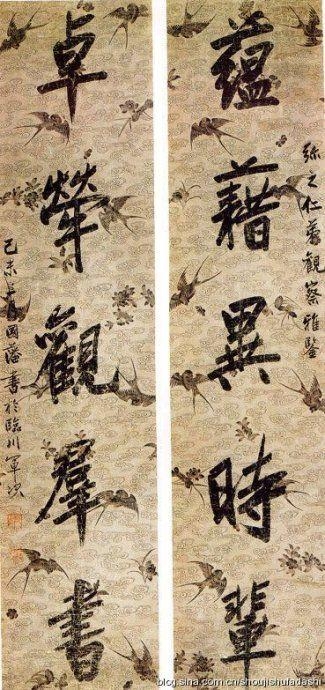 弥之仁弟觀察雅鑒
蕴藉異時輩
卓犖觀羣書
己未曾國藩書於臨川軍次
blog.sina.com.cn/shoujishufadashi